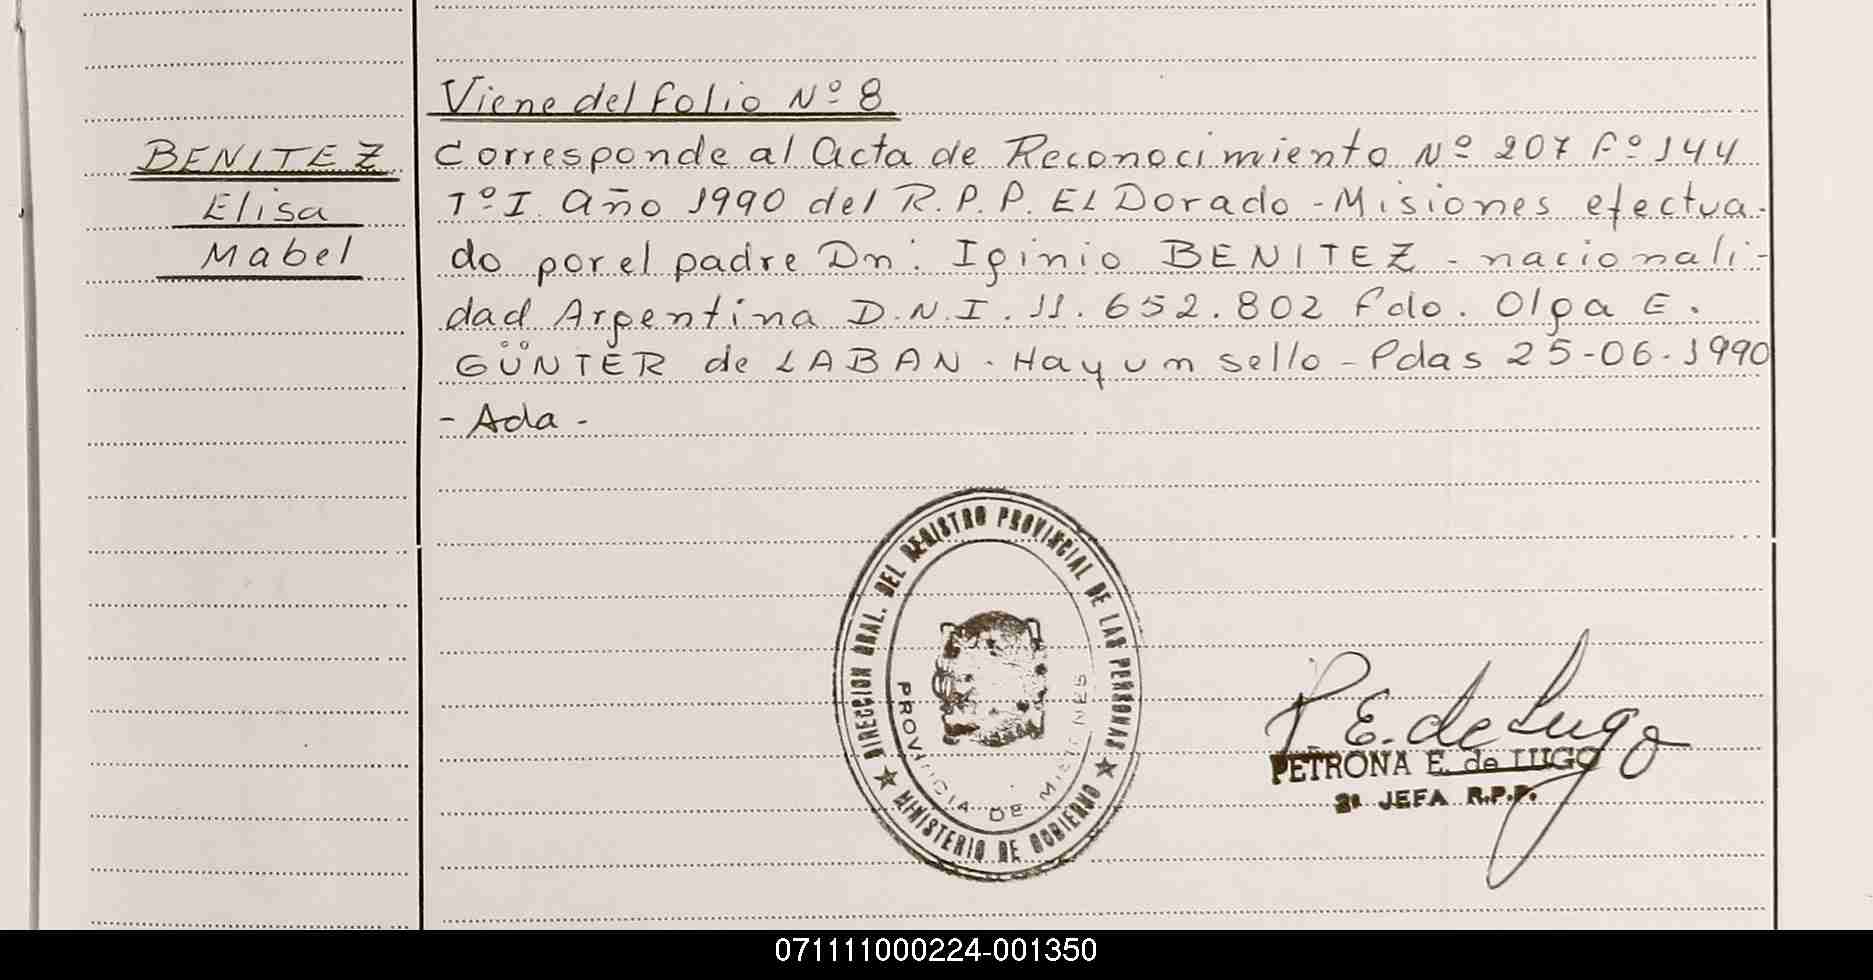 Viene del folio Nº 8
BENITEZ
Elisa
Mabel
Corresponde al acta de Reconocimiento Nº 207 Fº 144
Tº I. año 1990 del R.P.P. EL Dorado - Misiones efectua-
do por el padre Dn. Iginio BENITEZ - nacionali-
dad Argentina D.N.I. 11.652.802 Fdo. Olga E.
GÜNTER de LABAN. Hay un sello - Pdas 25-06-1990
- Ada -
DIRECCION GRAL. DEL REGISTRO PROVINCIAL DE LAS PERSONAS
PROVINCIA DE MISIONES
MINISTERIO DE GOBIERNO
P. E. de Lugo
PETRONA E. de LUGO
2ª JEFA R.P.P.
071111000224-001350